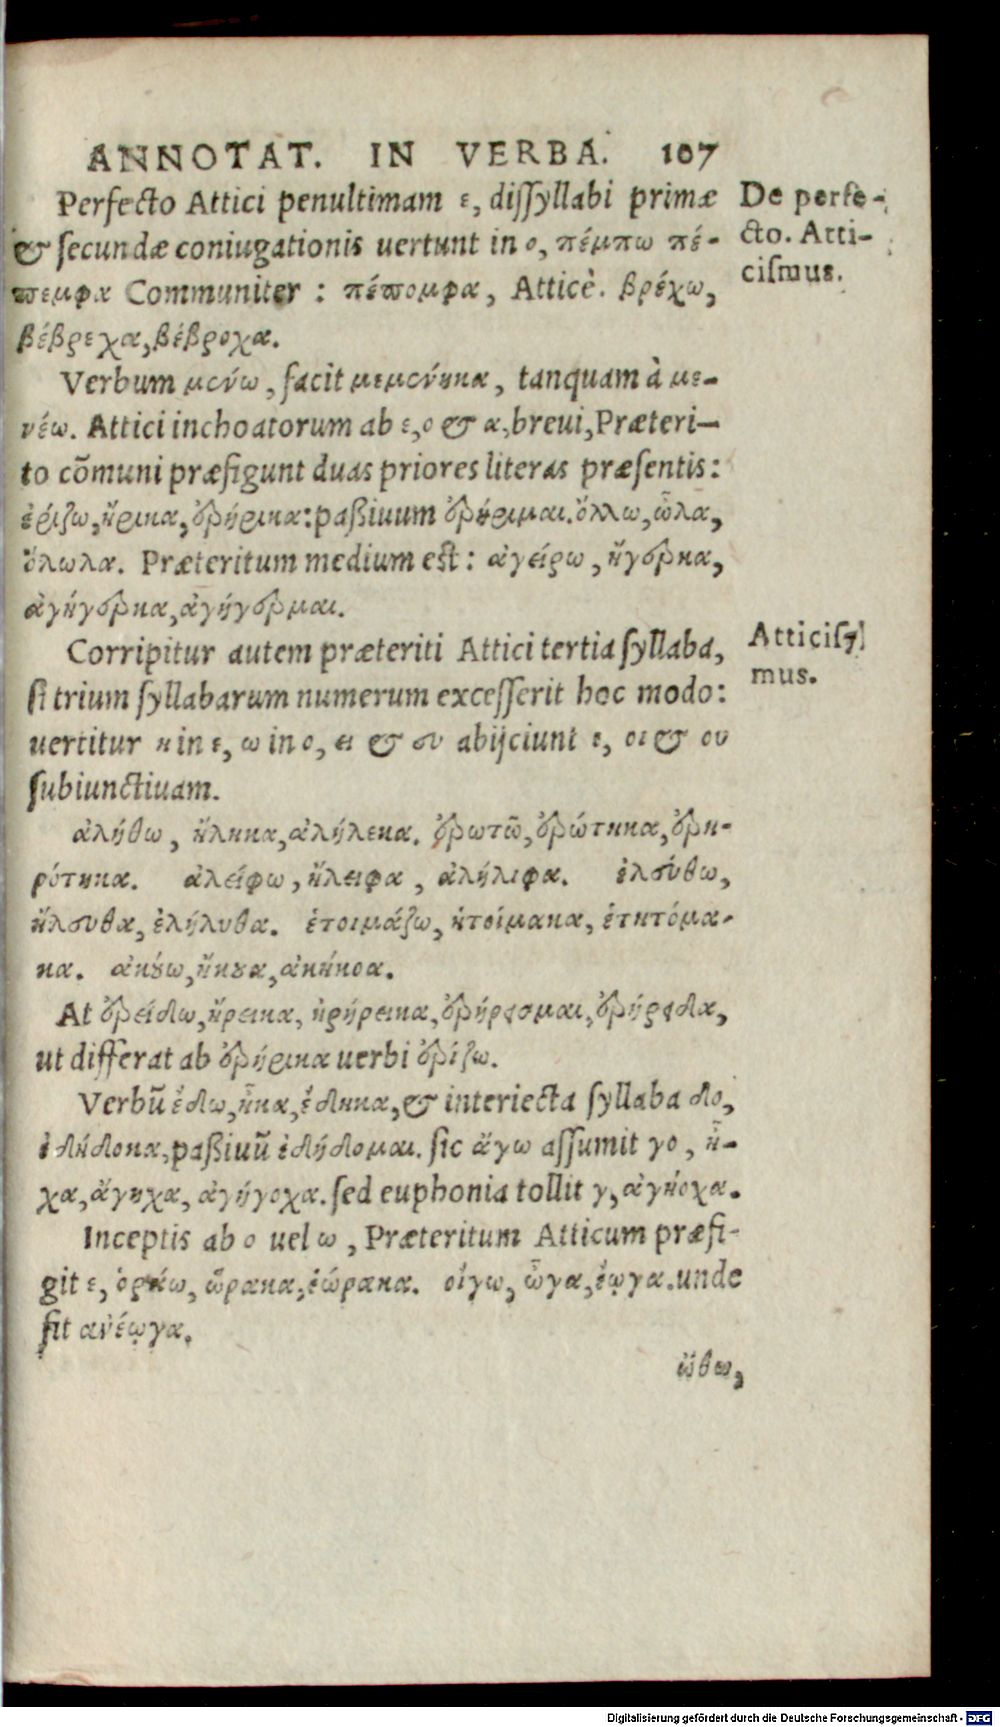 ANNOTAT. IN VERBA. 107
Perfecto Attici penultimam ε, dissyllabi primæ
& secundæ coniugationis uertunt in ο, πέμπω πέ-
πεμφα Communiter : πέπομφα, Atticè. βρέχω,
βέβρεχα, βέβροχα.
De perfe-
cto. Atti-
cismus.
Verbum μένω, facit μεμένηκα, tanquam à με-
νέω. Attici inchoatorum ab ε, ο & α, breui, Præteri-
to cõmuni præfigunt duas priores literas præsentis:
ἐρίζω, ἤρικα, ἐρήρικα: passiuum ἐρήριμαι. ὄλλω, ὦλα,
ὄλωλα. Præteritum medium est: ἀγείρω, ἤγερκα,
ἀγήγερκα, ἀγήγερμαι.
Corripitur autem præteriti Attici tertia syllaba,
si trium syllabarum numerum excesserit hoc modo:
uertitur η in ε, ω in ο, ει & ευ abijciunt ε, οι & ου
subiunctiuam.
Atticis-
mus.
ἀλήθω, ἤληκα, ἀλήλεκα. ἐρωτῶ, ἐρώτηκα, ἐρη-
ρότηκα. ἀλείφω, ἤλειφα, ἀλήλιφα. ἐλεύθω,
ἤλευθα, ἐλήλυθα. ἑτοιμάζω, ἡτοίμακα, ἑτητόμα-
κα. ἀκούω, ἤκουα, ἀκήκοα.
At ἐρείδω, ἤρεικα, ἠρήρεικα, ἐρήρεισμαι, ἐρήρειδα,
ut differat ab ἐρήρικα uerbi ἐρίζω.
Verbũ ἔδω, ἦκα, ἔδηκα, & interiecta syllaba δο,
ἐδήδοκα, passiuũ ἐδήδομαι. sic ἄγω assumit γο, ἦ-
χα, ἄγηχα, ἀγήγοχα. sed euphonia tollit γ, ἀγήοχα.
Inceptis ab ο uel ω, Præteritum Atticum præfi-
git ε, ὁράω, ὥρακα, ἑώρακα. οἴγω, ὦγα, ἔῳγα. unde
fit ἀνέῳγα.
ὤθω,
Digitalisierung gefördert durch die Deutsche Forschungsgemeinschaft - DFG